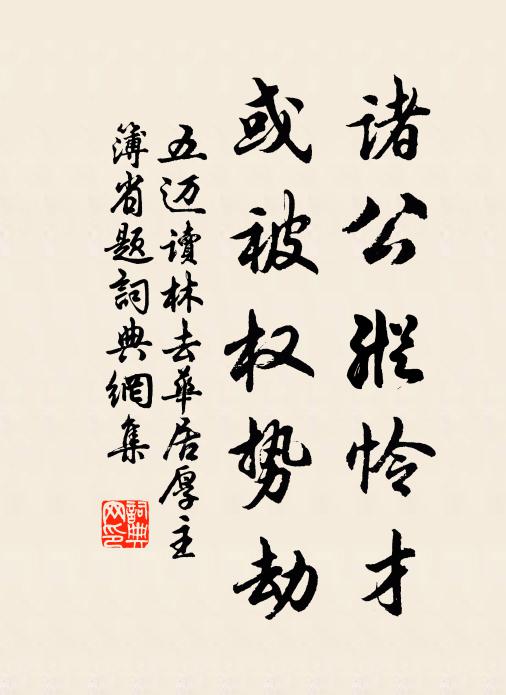 诸公纵怜才
或被权势劫
五迈读林去华居厚主
薄省题詞典網集
詞典网印